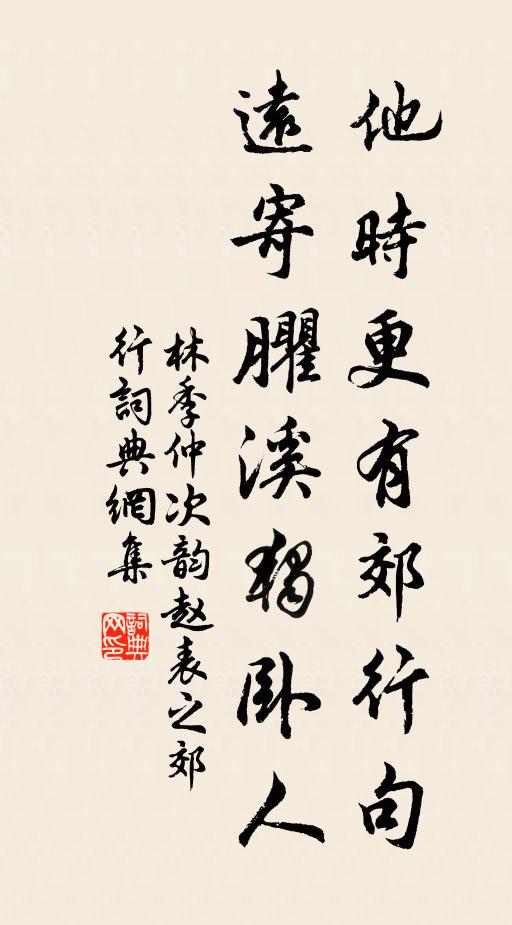 他時更有郊行句
遠寄臞溪獨卧人
林季仲次韵赵表之郊
行詞典網集
詞典
网印